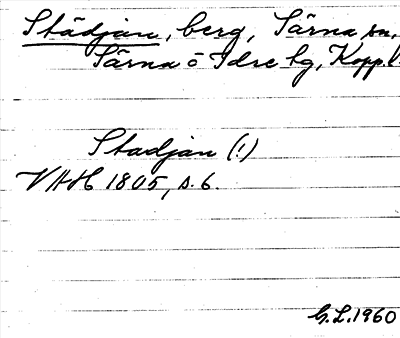 Städjan, berg, Särna sn,
Särna o Idre tg, Kopp.l.
Stadjan (!)
VAH 1805, s. 6.
G.L. 1960